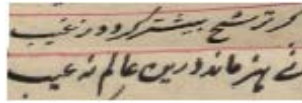 گر ترشح بیشتر گردد ز غیب
نے هنر ماند درین عالم نه عیب